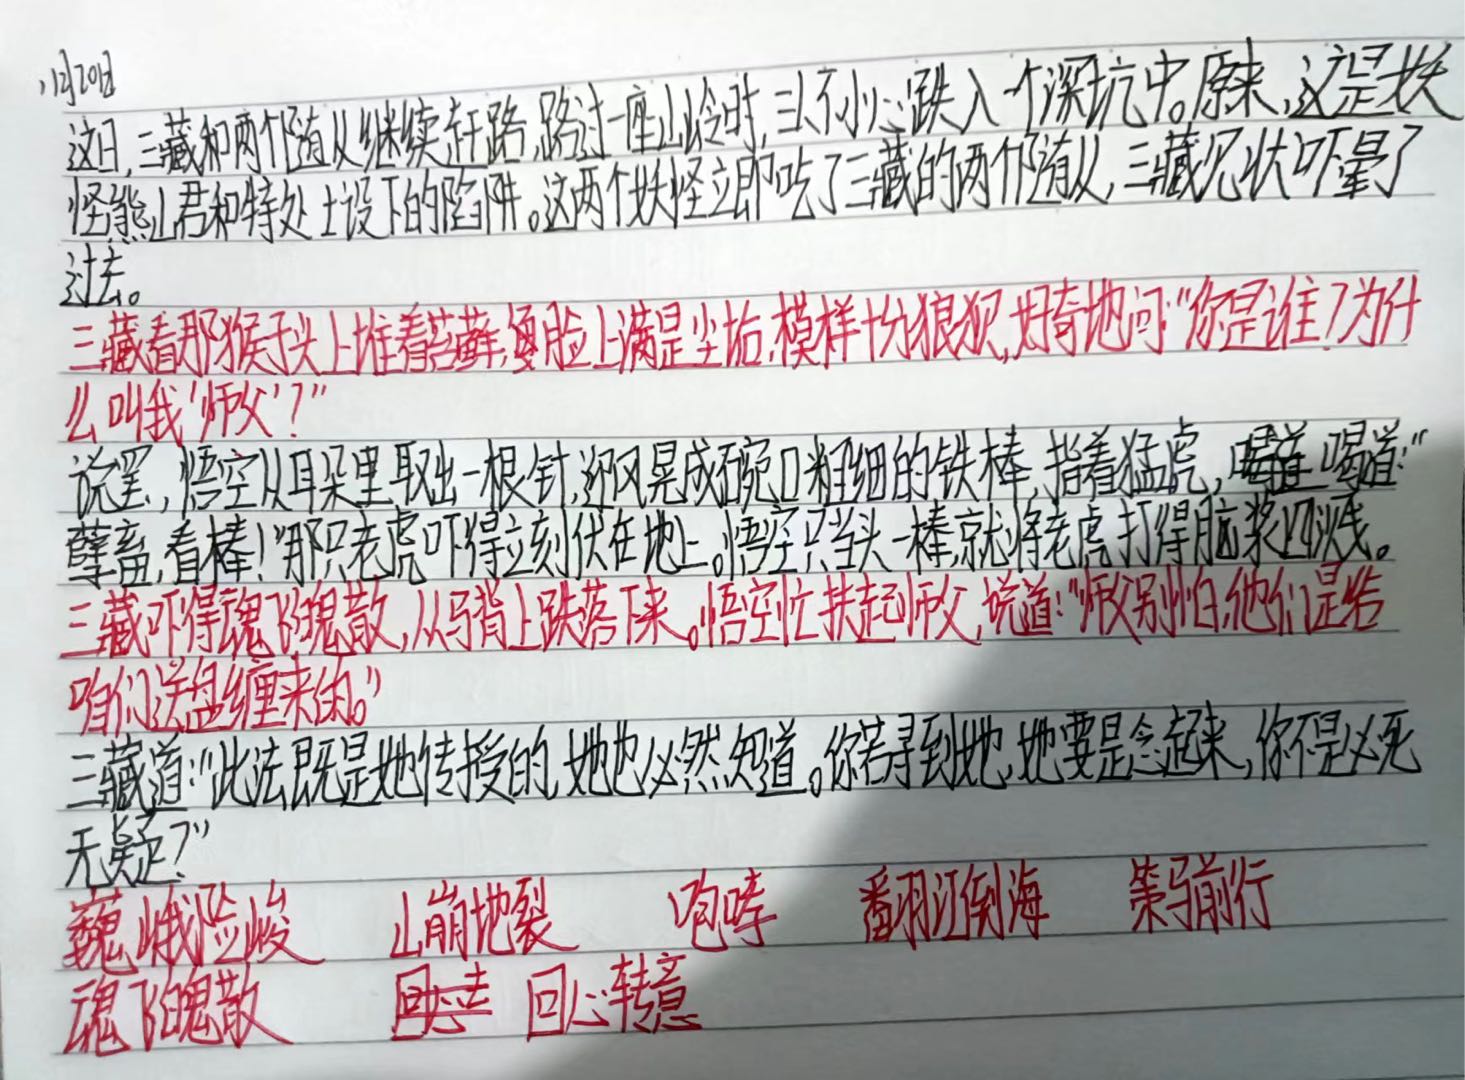 11月20日
这日,三藏和两个随从继续赶路,路过一座山岭时,三人不小心跌入一个深坑中。原来,这是妖
怪熊山君和特处士设下的陷阱。这两个妖怪立即吃了三藏的两个随从,三藏见状吓晕了
过去。
三藏看那猴子头上堆着苔藓,脸上满是尘垢,模样十分狼狈,好奇地问:“你是谁?为什
么叫我‘师父’?”
说罢,悟空从耳朵里取出一根针,迎风晃成碗口粗细的铁棒,指着猛虎,喝道:“
孽畜,看棒!”那只老虎吓得立刻伏在地上。悟空只当头一棒,就将老虎打得脑浆四溅。
三藏吓得魂飞魄散,从马背上跌落下来。悟空忙扶起师父,说道:“师父别怕,他们是给
咱们送盘缠来的。”
三藏道:“此法既是她传授的,她也必然知道。你若寻到她,她要是念起来,你不是必死
无疑?”
巍峨险峻 山崩地裂 咆哮 翻江倒海 策马前行
魂飞魄散 回心转意